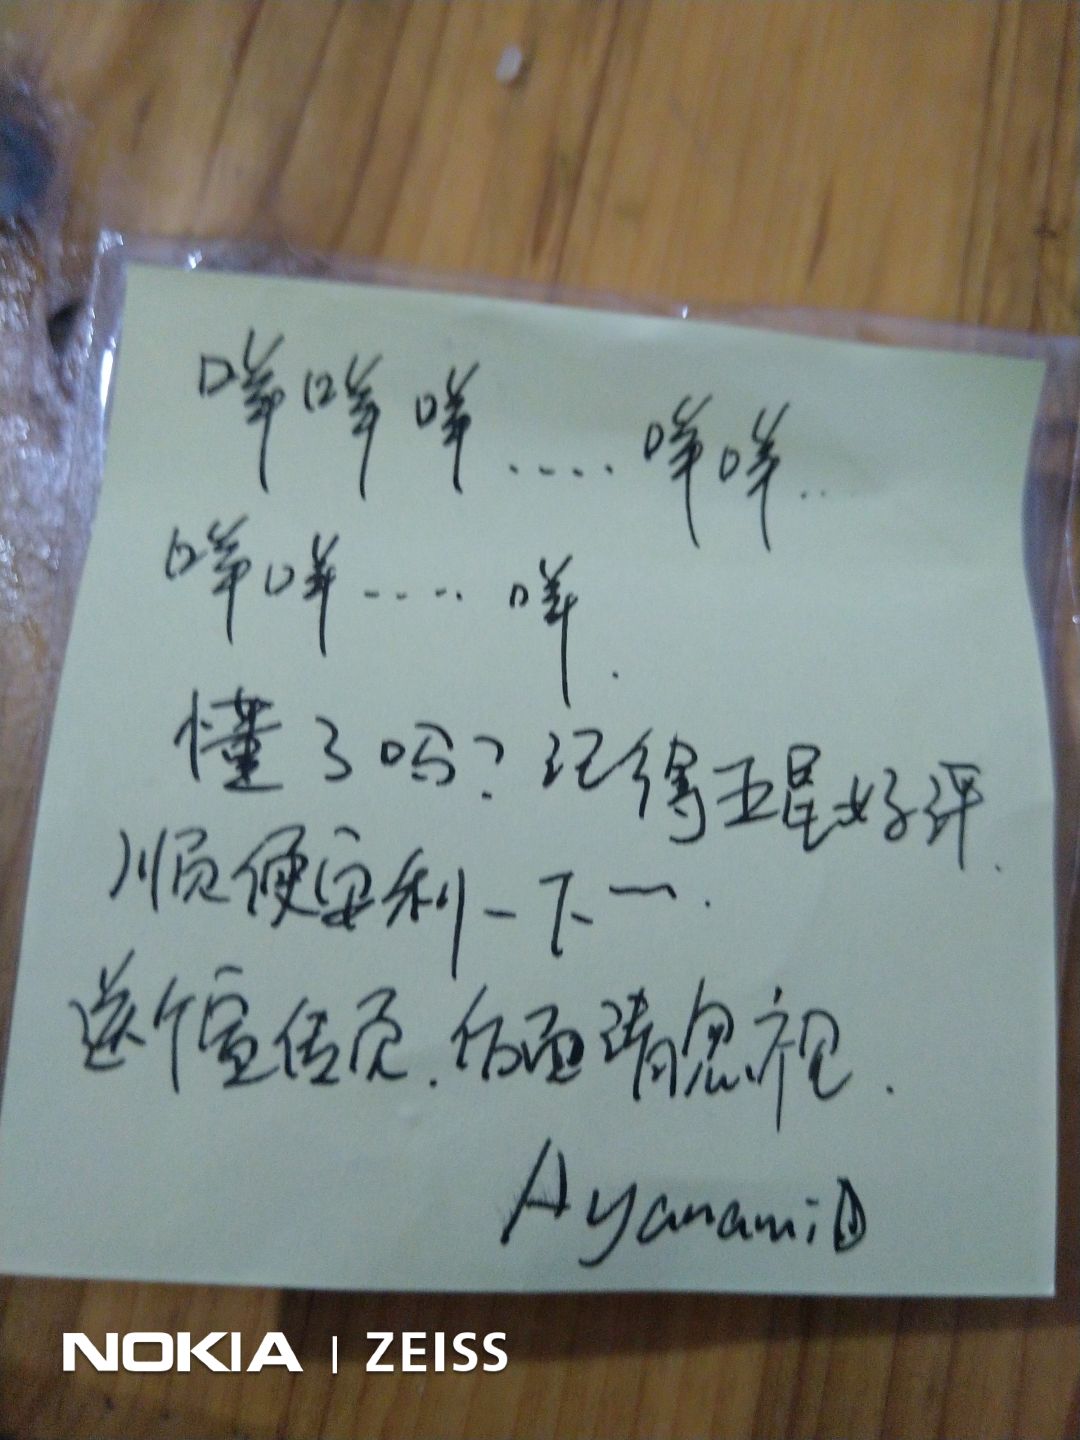 咩咩咩.....咩咩..
咩咩.....咩.
懂了吗?记得五星好评.
顺便安利一下一.
送个宣传页.伤面请忽视.
Ayanami
NOKIA | ZEISS